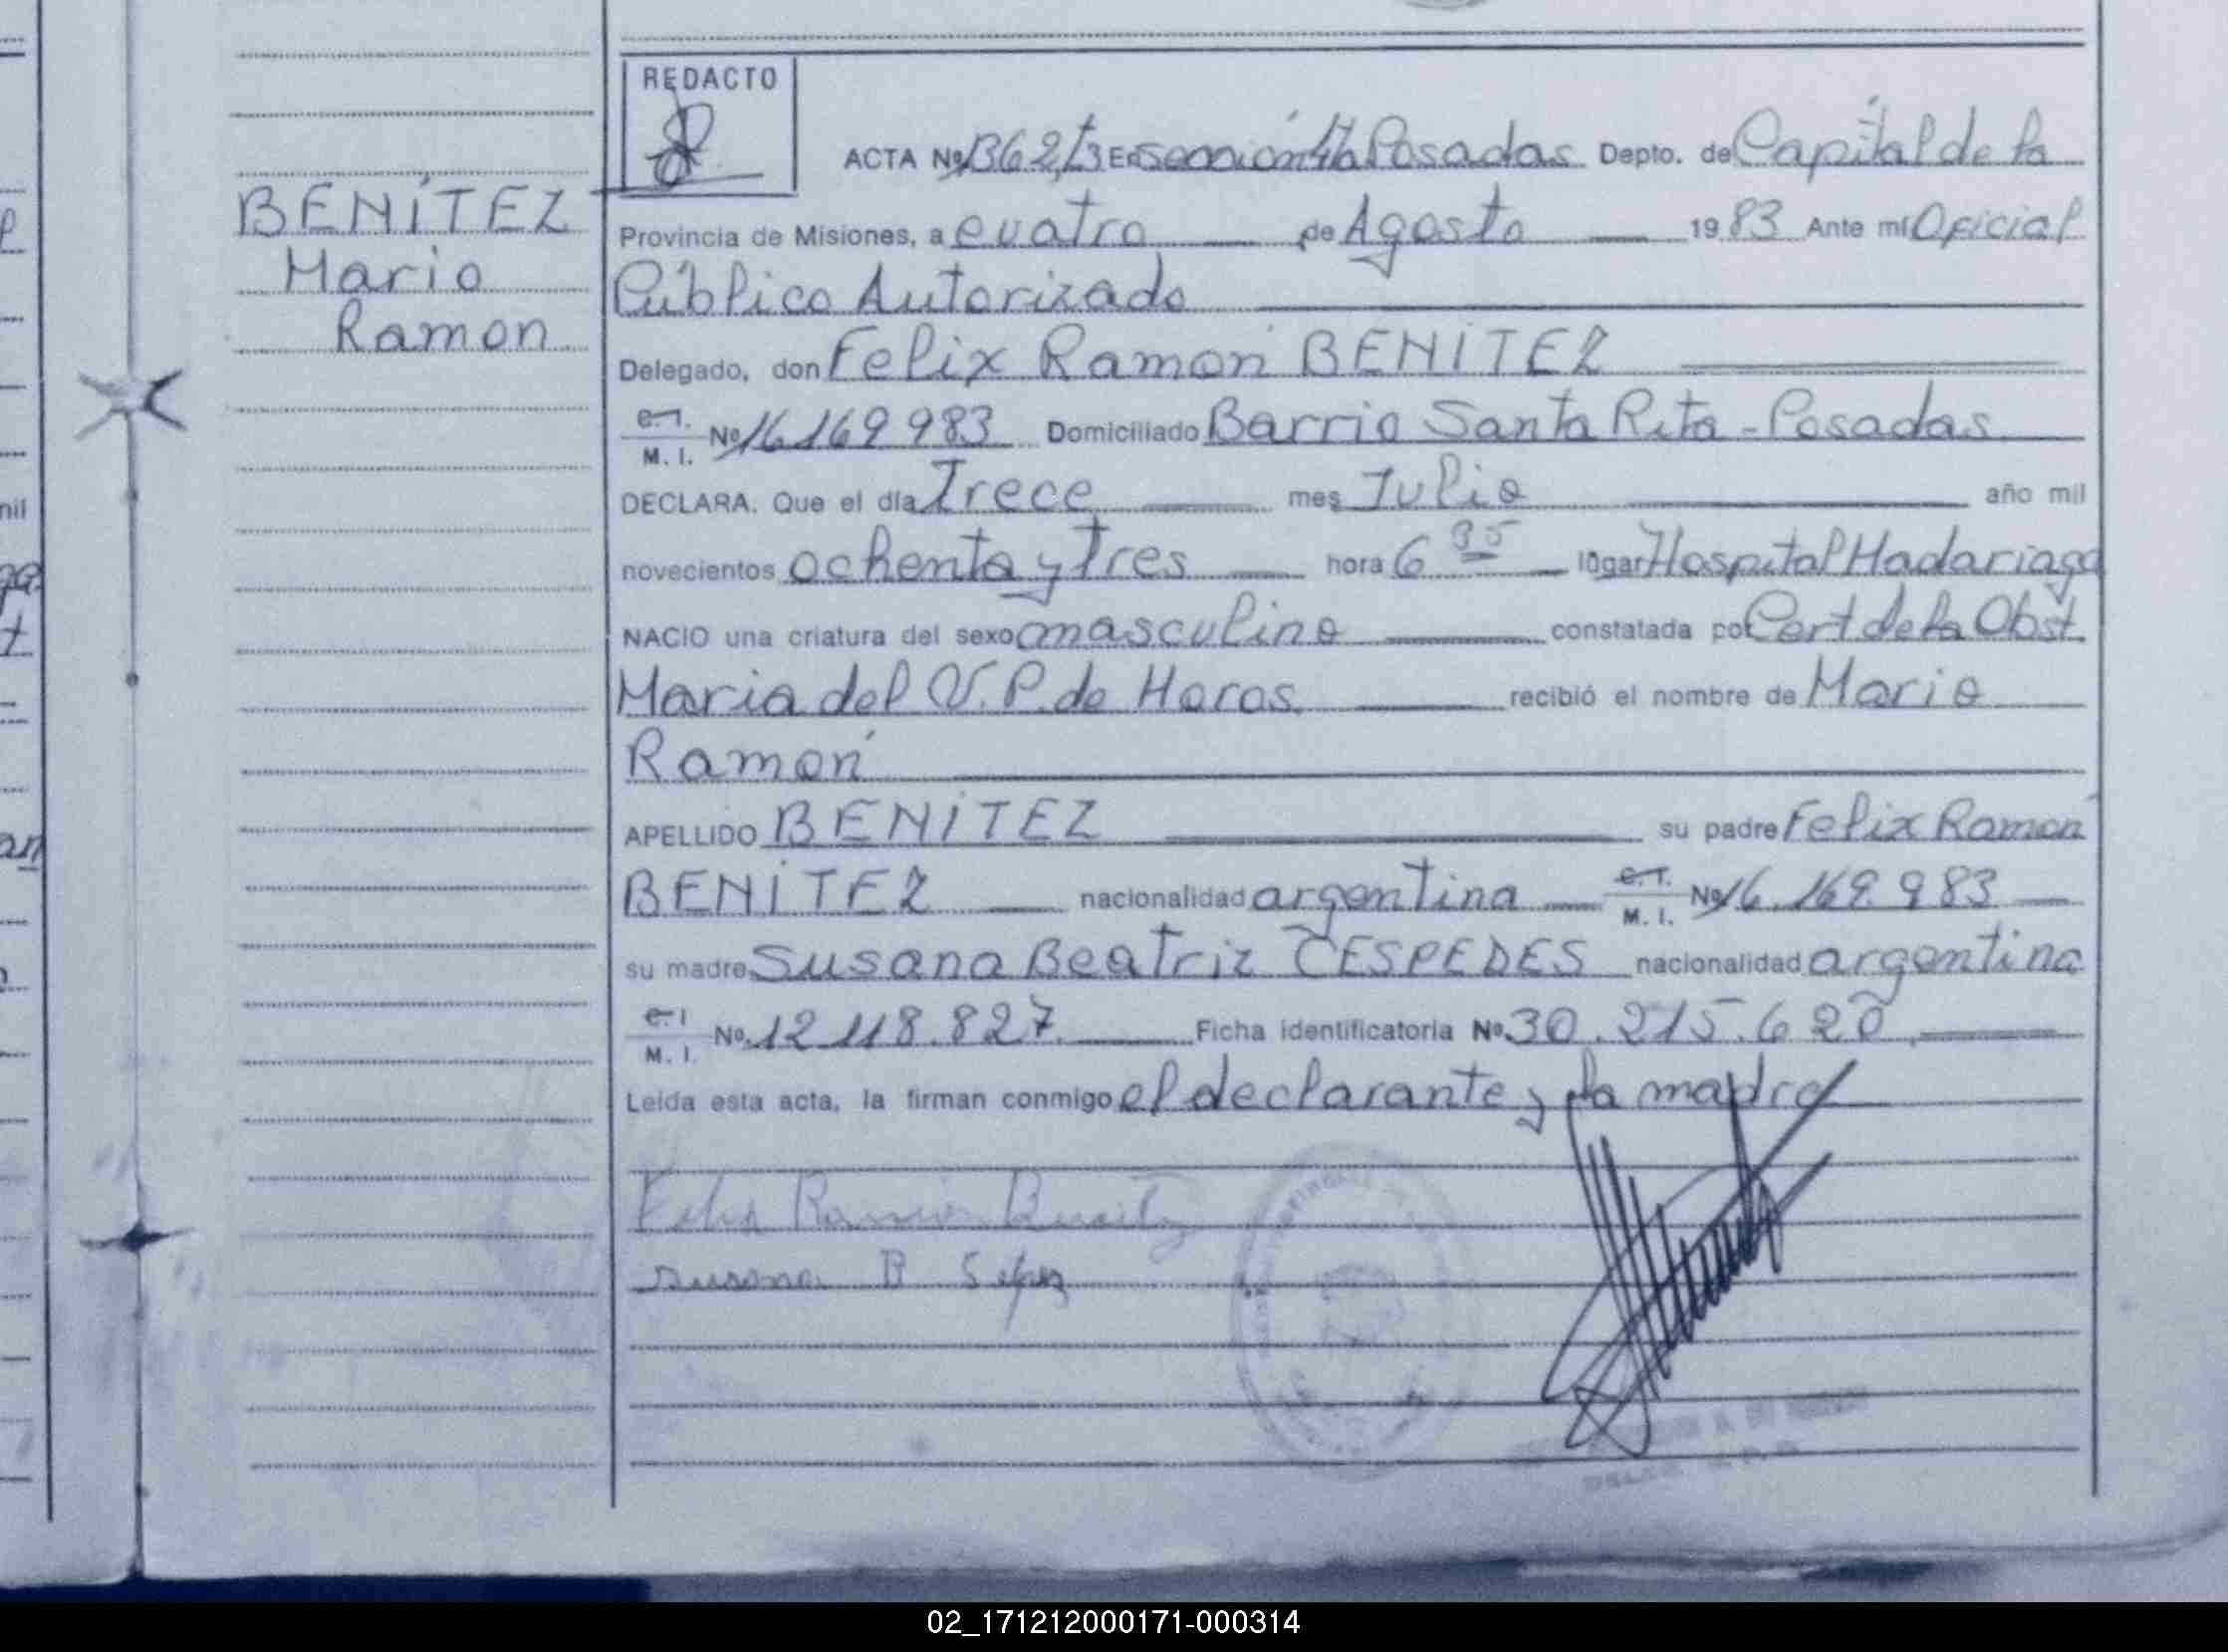 REDACTO
ACTA Nº 1362/3 En sección 4ta Posadas Depto. de Capital de la
BENÍTEZ
Provincia de Misiones, a cuatro de Agosto 1983 Ante mí Oficial
Mario
Público Autorizado
Ramon
Delegado, don Felix Ramón BENÍTEZ
C.I.
M. I. Nº 16.169.983 Domiciliado Barrio Santa Rita - Posadas
DECLARA. Que el día Trece mes Julio año mil
novecientos ochenta y Tres hora 6 35 lugar Hospital Madariaga
NACIO una criatura del sexo masculino constatada por Cert de la Obst
Maria del V. P. de Haros recibió el nombre de Mario
Ramón
APELLIDO BENÍTEZ su padre Felix Ramón
BENÍTEZ nacionalidad argentina C.I. M. I. Nº 16.169.983
su madre Susana Beatriz CESPEDES nacionalidad argentina
C.I.
M. I. Nº 12.118.827 Ficha identificatoria Nº 30.215.620
Leída esta acta, la firman conmigo el declarante y la madre
Felix Ramón Benitez
Susana B
02_171212000171-000314